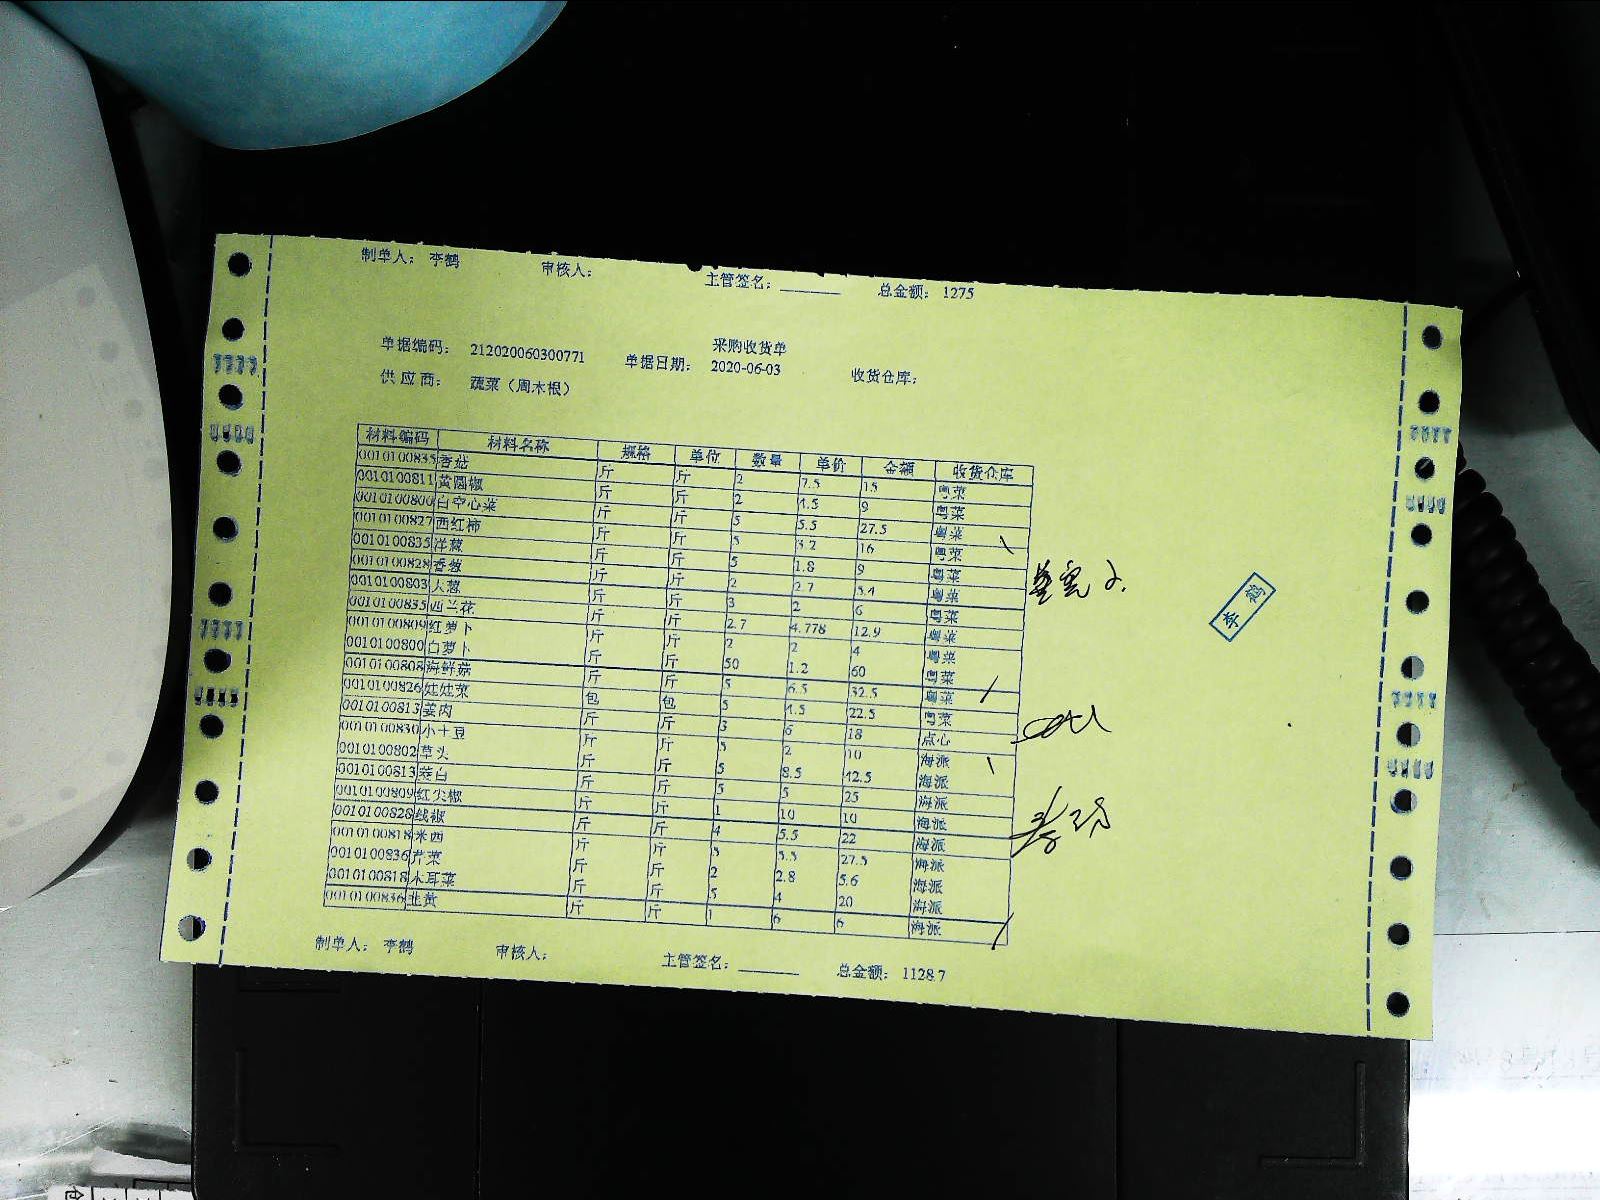 制单人： 李鹤 审核人： 主管签名：______ 总金额： 1275
采购收货单
单据编码： 212020060300771 单据日期： 2020-06-03 收货仓库：
供应商： 蔬菜（周木根）
材料编码 材料名称 规格 单位 数量 单价 金额 收货仓库
0010100835 香菇 斤 斤 2 7.5 15 粤菜
0010100811 黄圆椒 斤 斤 2 4.5 9 粤菜
0010100800 白空心菜 斤 斤 5 5.5 27.5 粤菜
0010100827 西红柿 斤 斤 5 3.2 16 粤菜
0010100835 洋葱 斤 斤 5 1.8 9 粤菜
0010100828 香葱 斤 斤 2 2.7 5.4 粤菜
0010100803 大葱 斤 斤 3 2 6 粤菜
0010100835 西兰花 斤 斤 2.7 4.778 12.9 粤菜
0010100809 红萝卜 斤 斤 2 2 4 粤菜
0010100800 白萝卜 斤 斤 50 1.2 60 粤菜
0010100808 海鲜菇 斤 斤 5 6.5 32.5 粤菜
0010100826 娃娃菜 包 包 5 4.5 22.5 粤菜
0010100813 姜肉 斤 斤 3 6 18 点心
0010100830 小土豆 斤 斤 5 2 10 海派
0010100802 草头 斤 斤 5 8.5 42.5 海派
0010100813 茭白 斤 斤 5 5 25 海派
0010100809 红尖椒 斤 斤 1 10 10 海派
0010100828 线椒 斤 斤 4 5.5 22 海派
0010100818 米西 斤 斤 5 5.5 27.5 海派
0010100836 芹菜 斤 斤 2 2.8 5.6 海派
0010100818 木耳菜 斤 斤 5 4 20 海派
0010100836 韭黄 斤 斤 1 6 6 海派
李鹤
制单人： 李鹤 审核人： 主管签名：______ 总金额： 1128.7